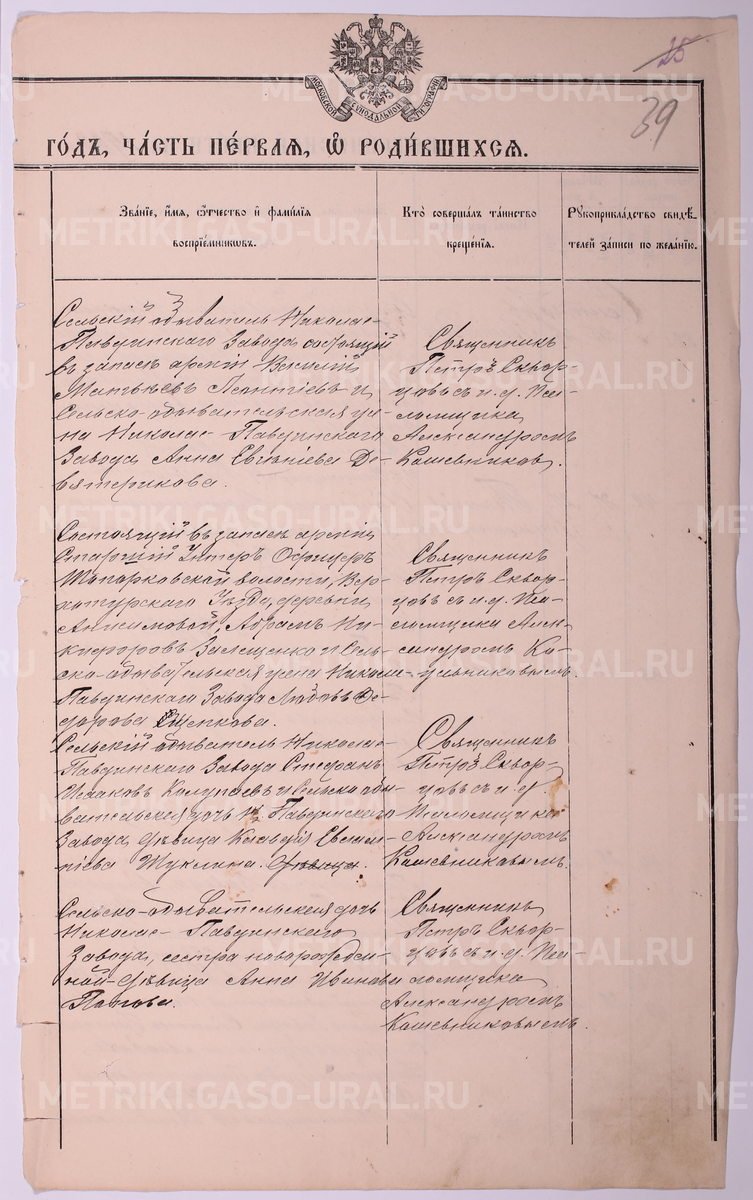 25
39
МОСКОВСКОЙ СѴНОДАЛЬНОЙ ТИПОГРАФІИ
ГО́ДЪ, ЧА́СТЬ ПЕ́РВАЯ, Ѡ҆ РОДИ́ВШИХСЯ.
Зва́нїе, и҆́мѧ, ѻ҆́тчество и҆ фами́лїѧ
воспрїе́мникѡвъ.
Кто̀ соверша́лъ та́инство
креще́нїѧ.
Рꙋкоприкла́дство свидѣ́-
телей за́писи по жела́нїю.
Сельскій обыватель Николае-
Павдинскаго Завода состоящій
въ запасѣ арміи Василій
Матвѣевъ Леонтіевъ и
Сельско-обывательская же-
на Николае-Павдинскаго
Завода Анна Евгеніева Де-
вятерикова.
Священникъ
Петръ Сквор-
цовъ съ и. д. Пса-
ломщика
Александромъ
Кашевников.
Состоящій въ запасѣ арміи
Старшій Унтеръ Офицеръ
Топорковской волости, Вер-
хотурскаго Уѣзда, деревни
Анисимовой, Абрамъ Ни-
кифоровъ и Сель-
ско-обывательская жена Николае-
Павдинскаго Завода Любовь Ѳе-
дорова Щепкова.
Священникъ
Петръ Сквор-
цовъ съ и. д. Пса-
ломщика Алек-
сандромъ Ка-
шевниковымъ.
Сельскій обыватель Николае-
Павдинскаго Завода Стефанъ
Исааковъ Колупаевъ и Сельско обы-
вательская дочь Н. Павдинскаго
Завода, дѣвица Клавдія Евсам-
піева Шуклина. дѣвица.
Священникъ
Петръ Сквор-
цовъ съ и. д.
Псаломщика
Александромъ
Кашевниковымъ.
Сельско-обывательская дочь
Николае-Павдинскаго
Завода, сестра новорожден-
ной дѣвица Анна Иванова
Попова.
Священникъ
Петръ Сквор-
цовъ съ и. д. Пса-
ломщика
Александромъ
Кашевниковымъ.
METRIKI.GASO-URAL.RU